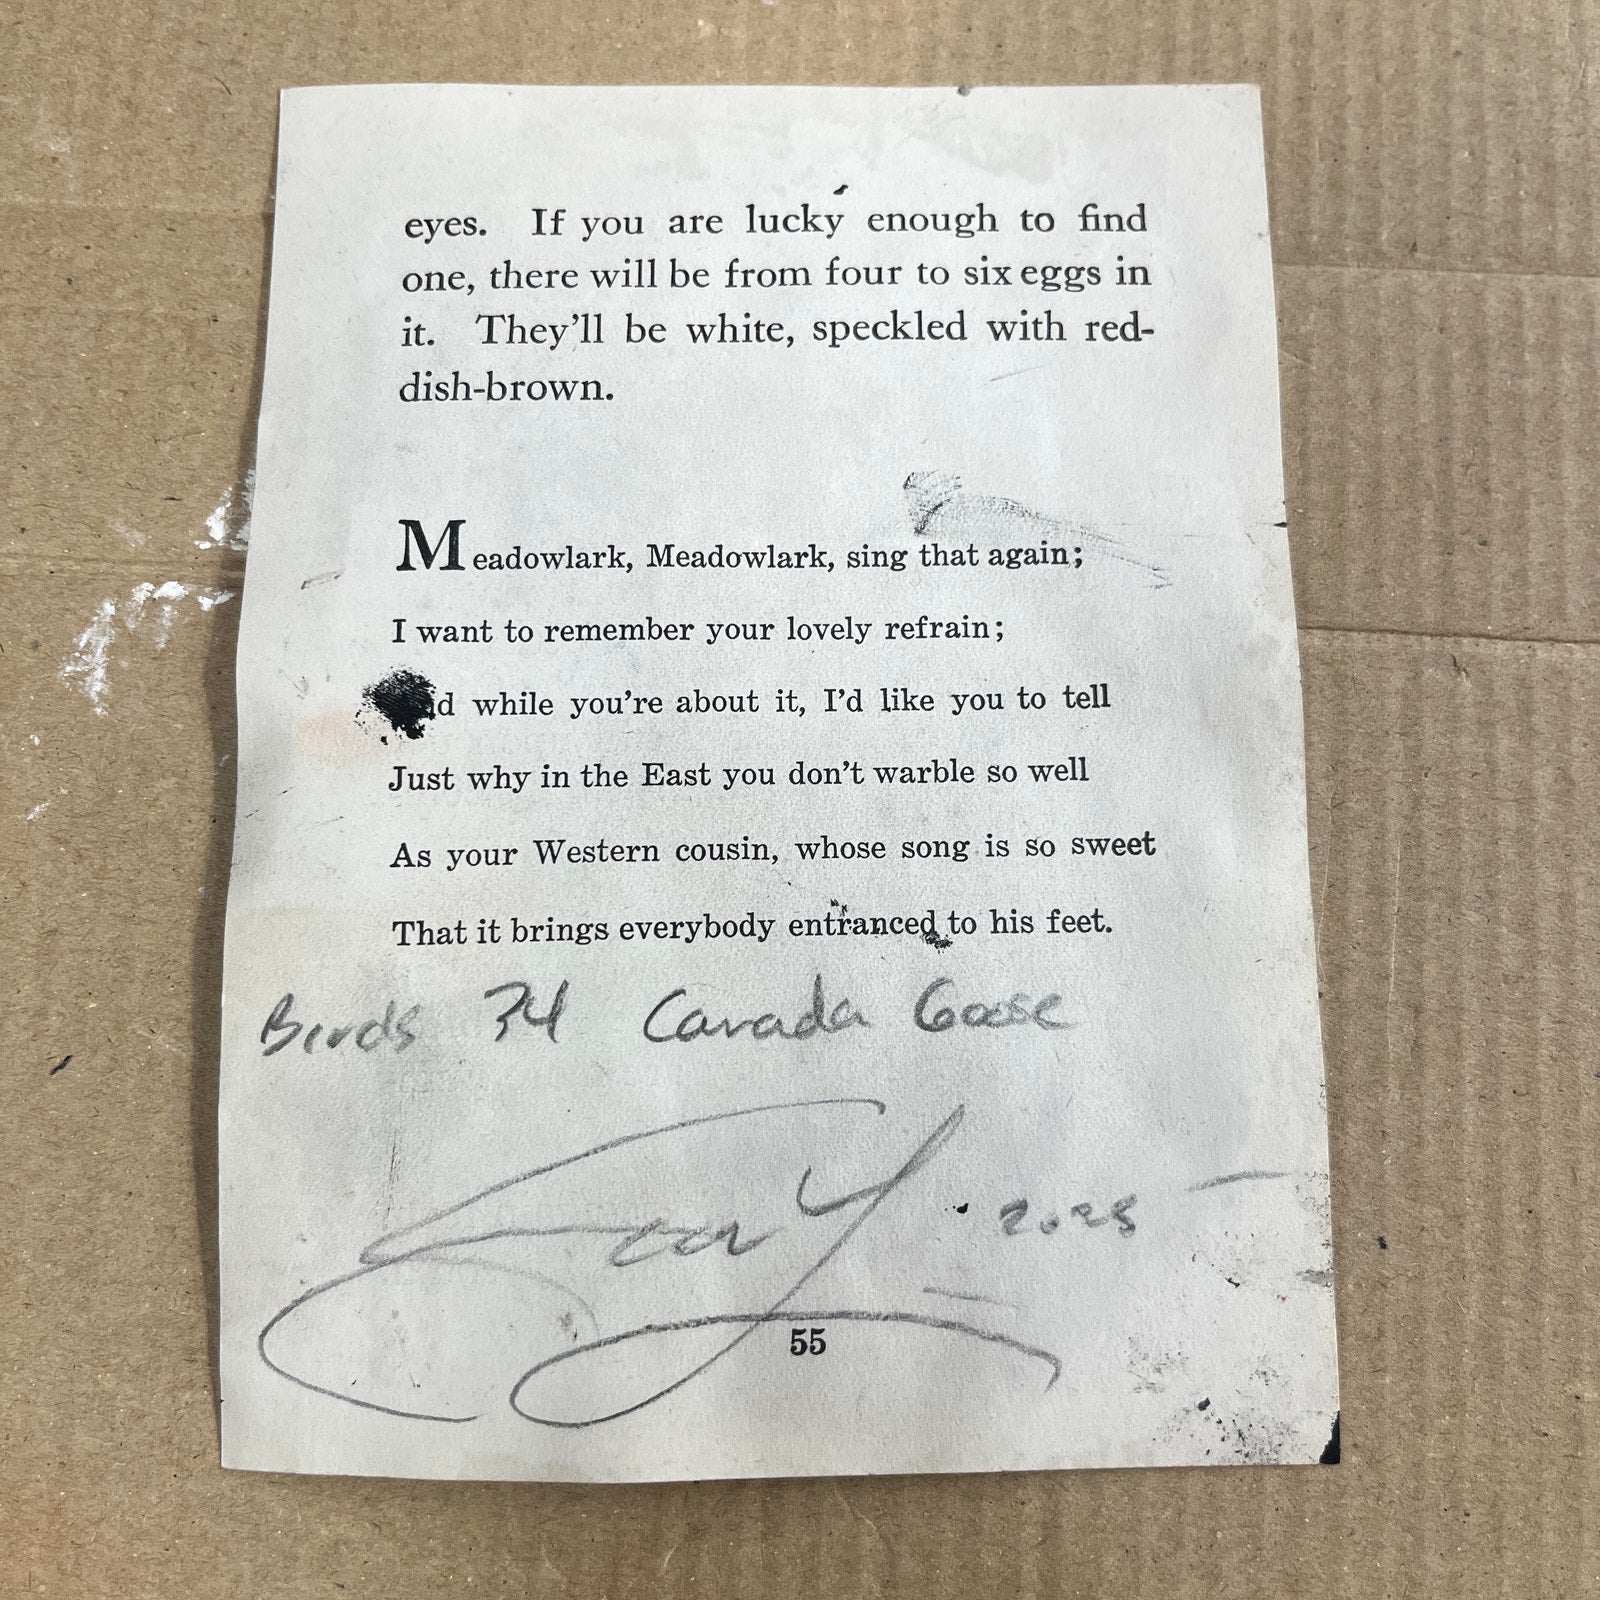 eyes. If you are lucky enough to find
one, there will be from four to six eggs in
it. They'll be white, speckled with red-
dish-brown.
Meadowlark, Meadowlark, sing that again;
I want to remember your lovely refrain;
d while you're about it, I'd like you to tell
Just why in the East you don't warble so well
As your Western cousin, whose song is so sweet
That it brings everybody entranced to his feet.
Birds 34 Canada Goose
2025
55